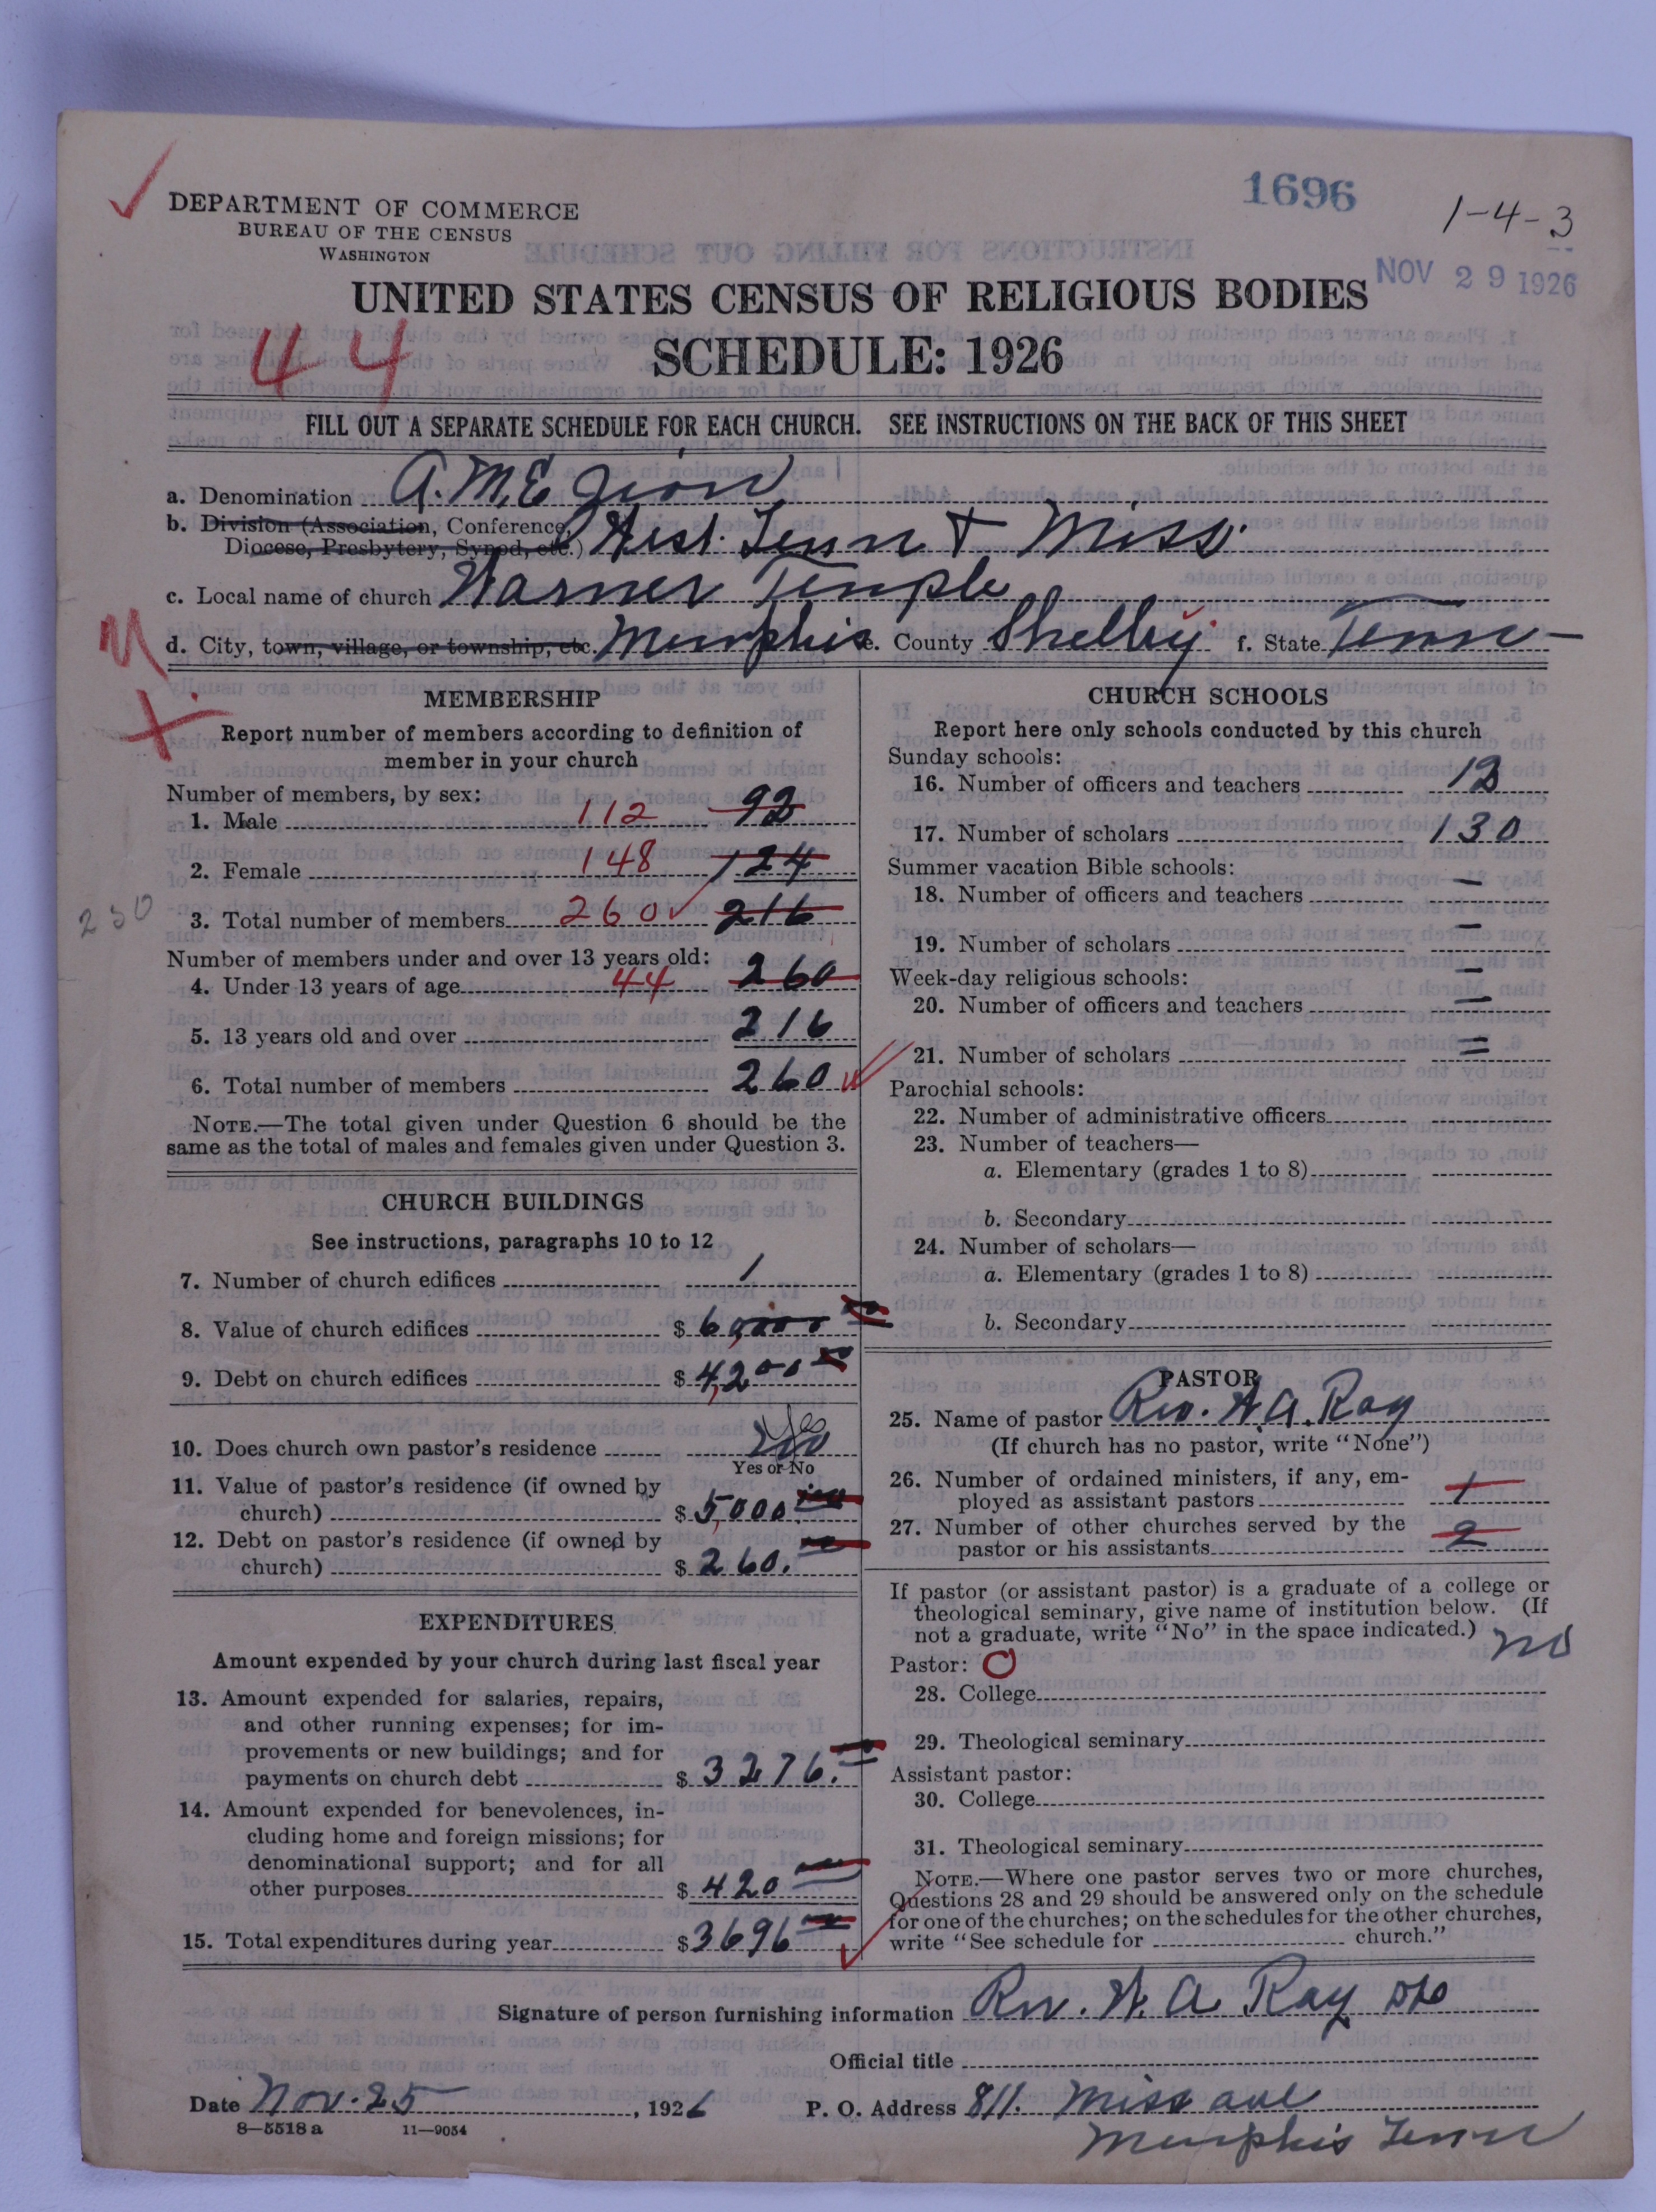 1696
1-4-3
DEPARTMENT OF COMMERCE
BUREAU OF THE CENSUS
WASHINGTON
NOV 29 1926
UNITED STATES CENSUS OF RELIGIOUS BODIES
44
SCHEDULE: 1926
FILL OUT A SEPARATE SCHEDULE FOR EACH CHURCH. SEE INSTRUCTIONS ON THE BACK OF THIS SHEET
a. Denomination A.M.E Zion
b. Division (Association, Conference,
Diocese, Presbytery, Synod, etc.) West. Tenn & Miss.
c. Local name of church Warner Temple
d. City, town, village, or township, etc. Memphis e. County Shelby f. State Tenn
MEMBERSHIP
Report number of members according to definition of
member in your church
Number of members, by sex:
1. Male 112 92
2. Female 148 124
230
3. Total number of members 260 216
Number of members under and over 13 years old:
4. Under 13 years of age 44 260
5. 13 years old and over 216
6. Total number of members 260
NOTE.—The total given under Question 6 should be the
same as the total of males and females given under Question 3.
CHURCH BUILDINGS
See instructions, paragraphs 10 to 12
7. Number of church edifices 1
8. Value of church edifices $ 60,000
9. Debt on church edifices $ 4,200
10. Does church own pastor's residence Yes
Yes or No
11. Value of pastor's residence (if owned by
church) $ 5,000
12. Debt on pastor's residence (if owned by
church) $ 260.
EXPENDITURES
Amount expended by your church during last fiscal year
13. Amount expended for salaries, repairs,
and other running expenses; for im-
provements or new buildings; and for
payments on church debt $ 3276.
14. Amount expended for benevolences, in-
cluding home and foreign missions; for
denominational support; and for all
other purposes $ 420
15. Total expenditures during year $ 3696
CHURCH SCHOOLS
Report here only schools conducted by this church
Sunday schools:
16. Number of officers and teachers 12
17. Number of scholars 130
Summer vacation Bible schools:
18. Number of officers and teachers –
19. Number of scholars –
Week-day religious schools:
20. Number of officers and teachers =
21. Number of scholars =
Parochial schools:
22. Number of administrative officers
23. Number of teachers—
a. Elementary (grades 1 to 8)
b. Secondary
24. Number of scholars—
a. Elementary (grades 1 to 8)
b. Secondary
PASTOR
25. Name of pastor Rev. W. A. Ray
(If church has no pastor, write "None")
26. Number of ordained ministers, if any, em-
ployed as assistant pastors 1
27. Number of other churches served by the
pastor or his assistants 2
If pastor (or assistant pastor) is a graduate of a college or
theological seminary, give name of institution below. (If
not a graduate, write "No" in the space indicated.) no
Pastor: O
28. College
29. Theological seminary
Assistant pastor:
30. College
31. Theological seminary
NOTE.—Where one pastor serves two or more churches,
Questions 28 and 29 should be answered only on the schedule
for one of the churches; on the schedules for the other churches,
write "See schedule for church."
Signature of person furnishing information Rev. W. A. Ray
Official title
Date Nov. 25, 1926 P. O. Address 811. Miss ave
8—5518 a 11—9054
Memphis Tenn